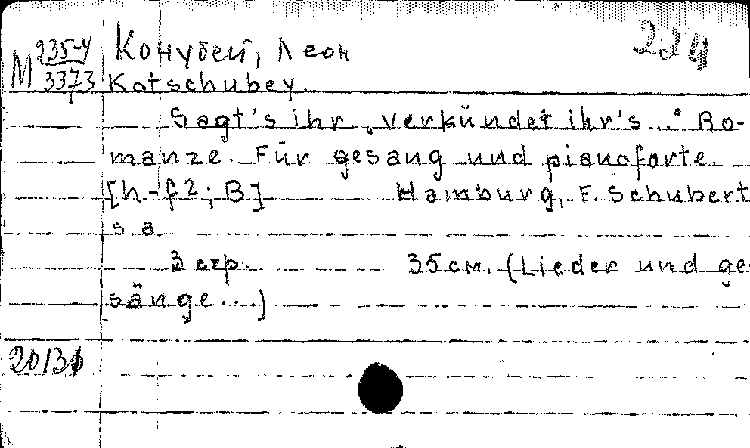 224
М 235-4 Конубей, Леон
3373 Katschubey.
Sagt's ihr „verkündet ihr's..." Ro-
manze. Für gesang und pianoforte.
[h-f2; B] Hamburg, F. Schubert
s a
3 стр. 35 см. (Lieder und ge
sänge...)